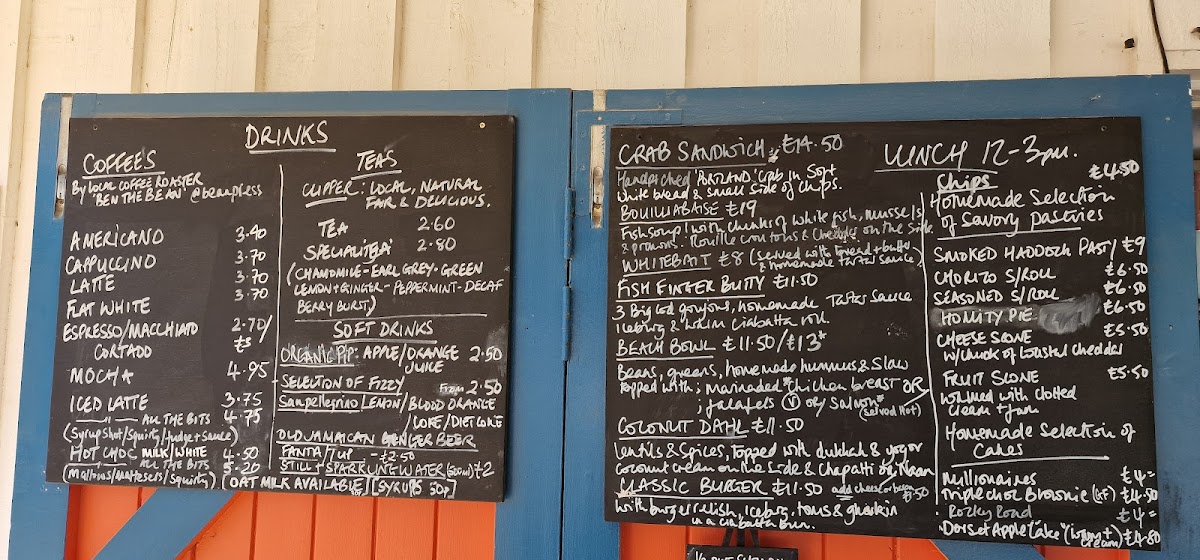 DRINKS
COFFEES
By LOCAL COFFEE ROASTER
'BEN THE BEAN' @beanpress
AMERICANO 3.40
CAPPUCCINO 3.70
LATTE 3.70
FLAT WHITE 3.70
ESPRESSO/MACCHIATO 2.70/
CORTADO £3
MOCHA 4.95
ICED LATTE 3.75
ALL THE BITS 4.75
(Syrup shot/squirty/fudge + sauce)
HOT CHOC MILK/WHITE 4.50
ALL THE BITS 5.20
(Mallows/maltesers/squirty)
TEAS
CLIPPER: LOCAL, NATURAL
FAIR & DELICIOUS.
TEA 2.60
SPECIALITEA 2.80
(CHAMOMILE - EARL GREY - GREEN
LEMON + GINGER - PEPPERMINT - DECAF
BERRY BURST)
SOFT DRINKS
ORGANIC PIP: APPLE/ORANGE 2.50
JUICE
SELECTION OF FIZZY From 2.50
Sanpellegrino LEMON/BLOOD ORANGE
/COKE/DIET COKE
OLD JAMAICAN GINGER BEER
FANTA/7UP - £2.50
STILL + SPARKLING WATER (500ml) £2
(OAT MILK AVAILABLE) [SYRUPS 50p]
CRAB SANDWICH £14.50
Handpicked 'PORTLAND' Crab in Soft
white bread & small side of chips.
BOUILLABAISE £19
Fish soup with chunks of white fish, mussels
& prawns. Rouille croutons & Cheddar on the side.
WHITEBAIT £8 (served with bread + butter
& homemade tartar sauce)
FISH FINGER BUTTY £11.50
3 Big cod goujons, homemade Tartar sauce
iceburg & warm Ciabatta roll.
BEACH BOWL £11.50/£13*
Beans, greens, homemade hummus & slaw
topped with; marinaded *chicken breast OR
; falafels (V) or/ Salmon*
(served hot)
COCONUT DAHL £11.50
Lentils & Spices, topped with dukkah & yogur
coconut cream on the side & Chapatti or Naan
CLASSIC BURGER £11.50 add cheese or bacon £1.50
with burger relish, iceburg, toms & gherkin
in a ciabatta bun.
LUNCH 12-3pm.
Chips £4.50
Homemade Selection
of Savory Pastries
SMOKED HADDOCK PASTY £9
CHORIZO S/ROLL £6.50
SEASONED S/ROLL £6.50
HOMITY PIE £6.50
CHEESE SCONE £5.50
w/chunk of toasted cheddar
FRUIT SCONE £5.50
w/ clotted
cream + jam
Homemade Selection of
Cakes
Millionaires £4=
Triple choc Brownie (GF) £4.50
Rocky Road £4=
Dorset Apple Cake (warm + cream) £4.80